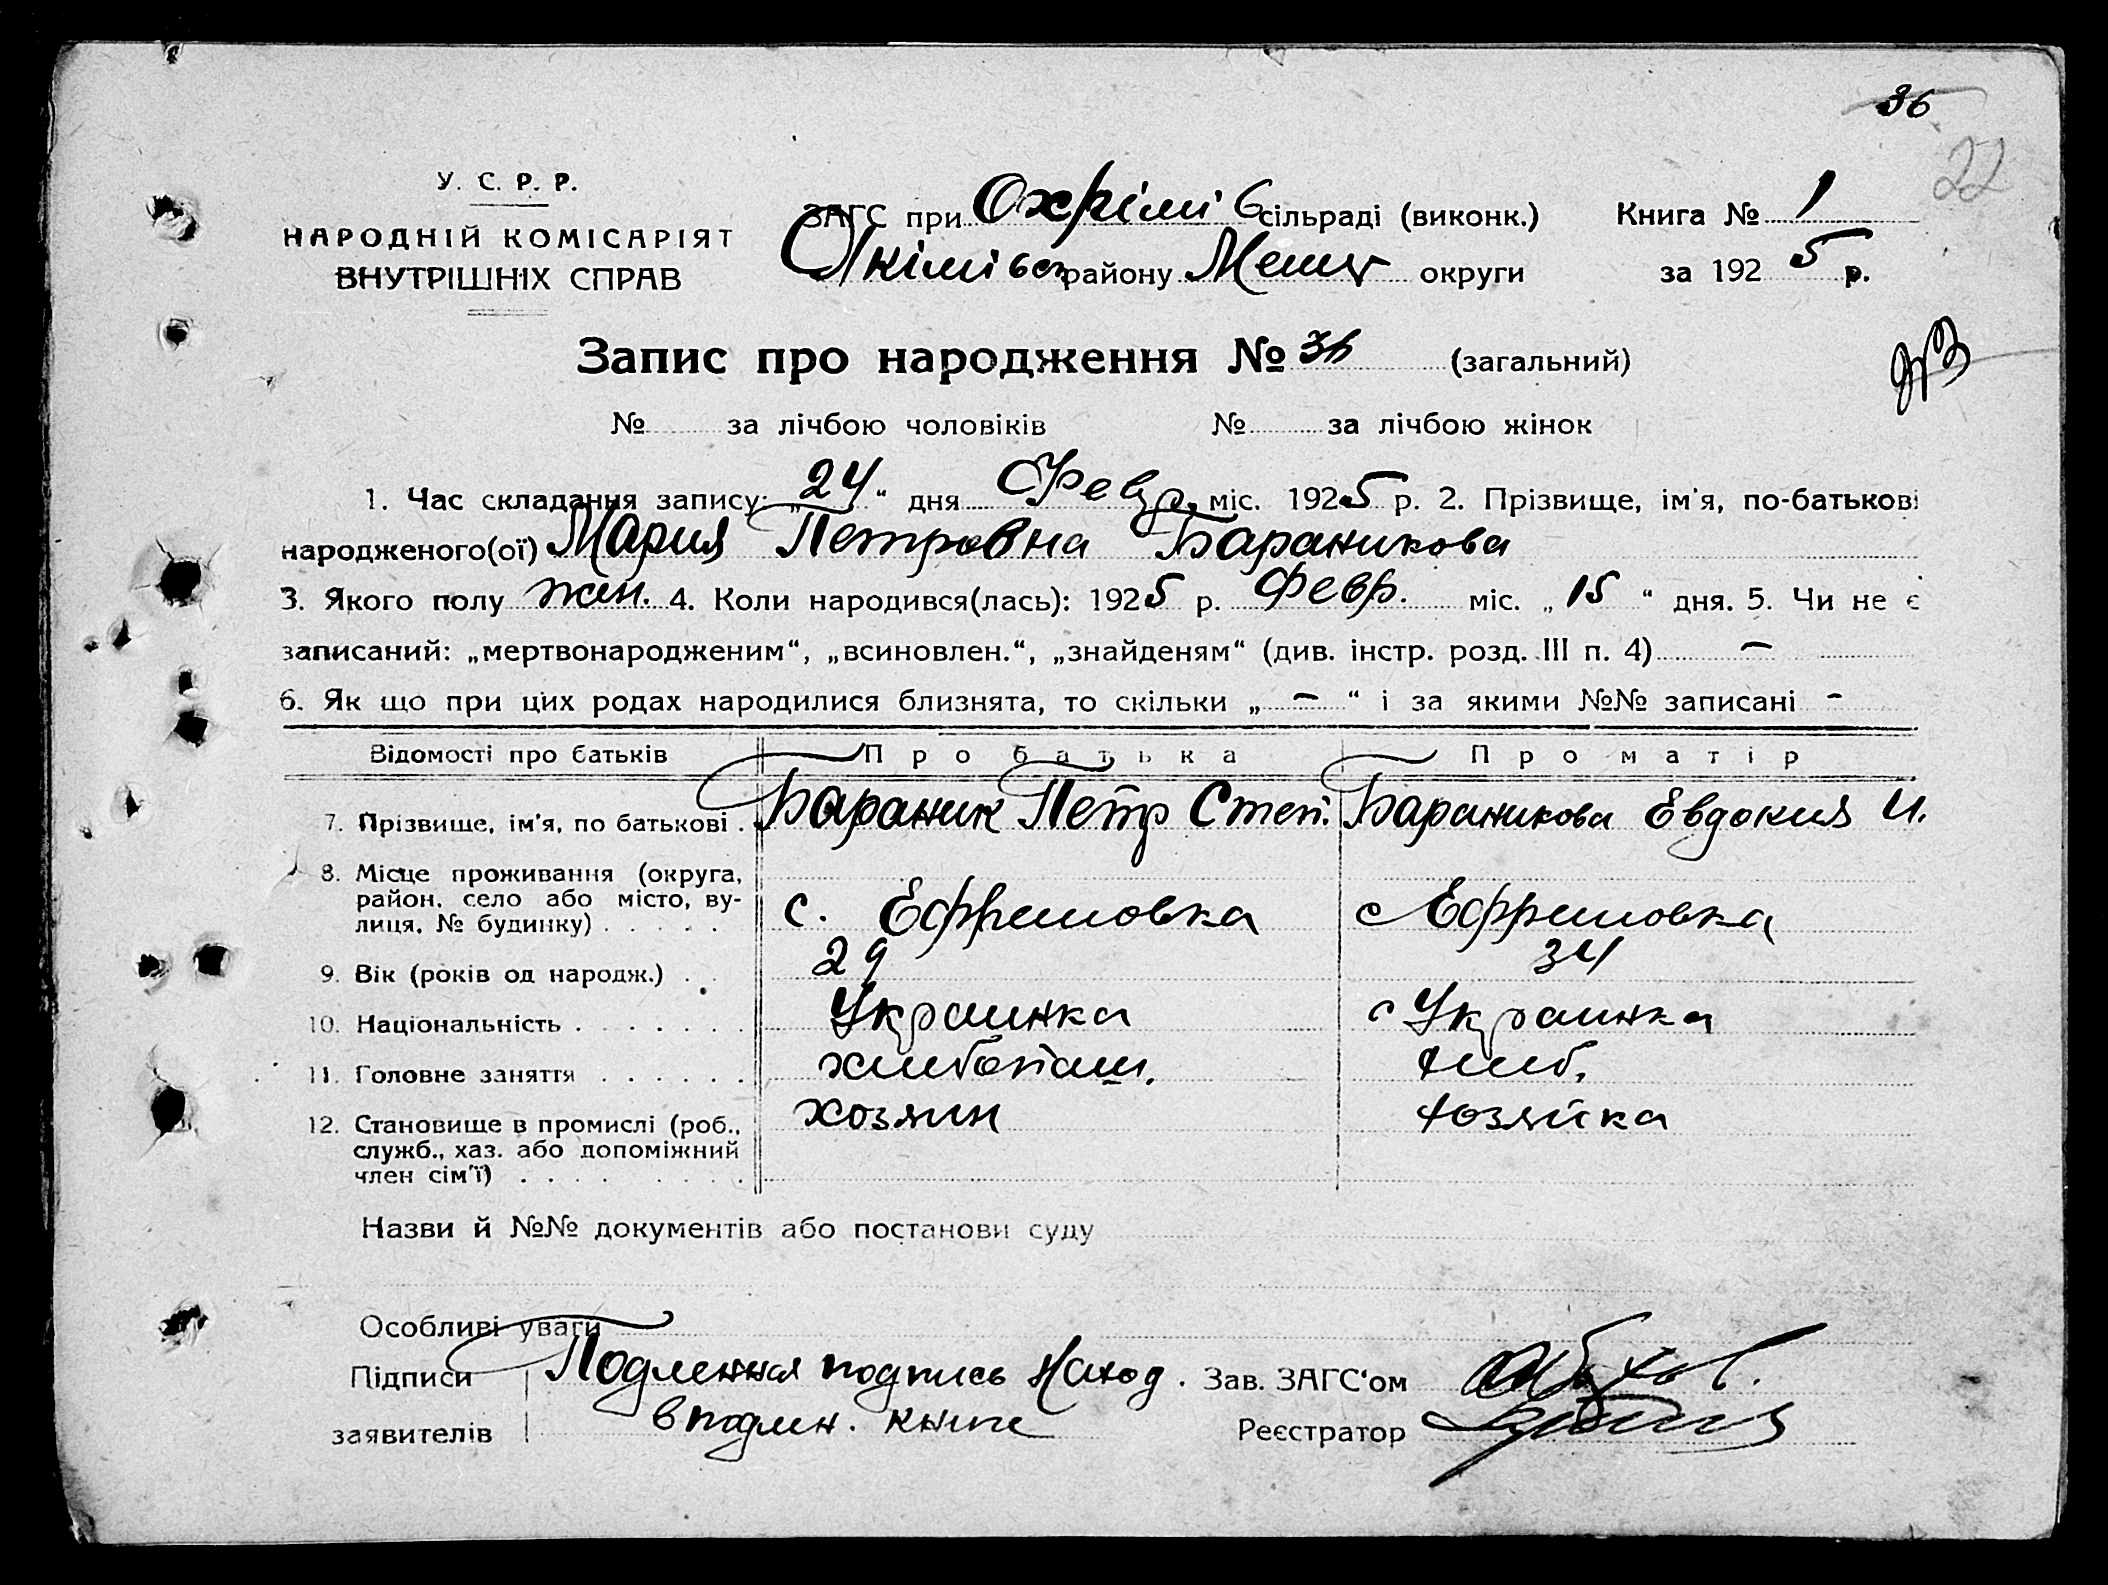 36
22
У. С. Р. Р.
НАРОДНІЙ КОМІСАРІЯТ
ВНУТРІШНІХ СПРАВ
ЗАГС при Охрімів сільраді (виконк.) Книга № 1
Якімівськ району Меліт округи за 1925 р.
Запис про народження № 36 (загальний)
№ за лічбою чоловіків № за лічбою жінок
1. Час складання запису: „24“ дня Февр. міс. 1925 р. 2. Прізвище, ім'я, по-батькові
народженого(ої) Мария Петровна Бараникова
3. Якого полу жен. 4. Коли народився(лась): 1925 р. Февр. міс. „15“ дня. 5. Чи не є
записаний: „мертвонародженим“, „всиновлен.“, „знайденям“ (див. інстр. розд. III п. 4) —
6. Як що при цих родах народилися близнята, то скільки „ — “ і за якими №№ записані -
Відомості про батьків Про батька Про матір
7. Прізвище, ім'я, по батькові . Бараник Петр Степ. Бараникова Евдокия И.
8. Місце проживання (округа,
район, село або місто, ву-
лиця, № будинку) . . . . . с. Ефремовка с Ефремовка
9. Вік (років од народж.) . . 29 34
10. Національність . . . . . . . Украинка Украинка
11. Головне заняття . . . . . . хлиборищ. хлиб.
12. Становище в промислі (роб., хозяин хозяйка
служб., хаз. або допоміжний
член сім'ї) . . . . . . . .
Назви й №№ документів або постанови суду
Особливі уваги
Підписи Подленная подпись наход. Зав. ЗАГС'ом
заявителів в подлин. книге Реєстратор